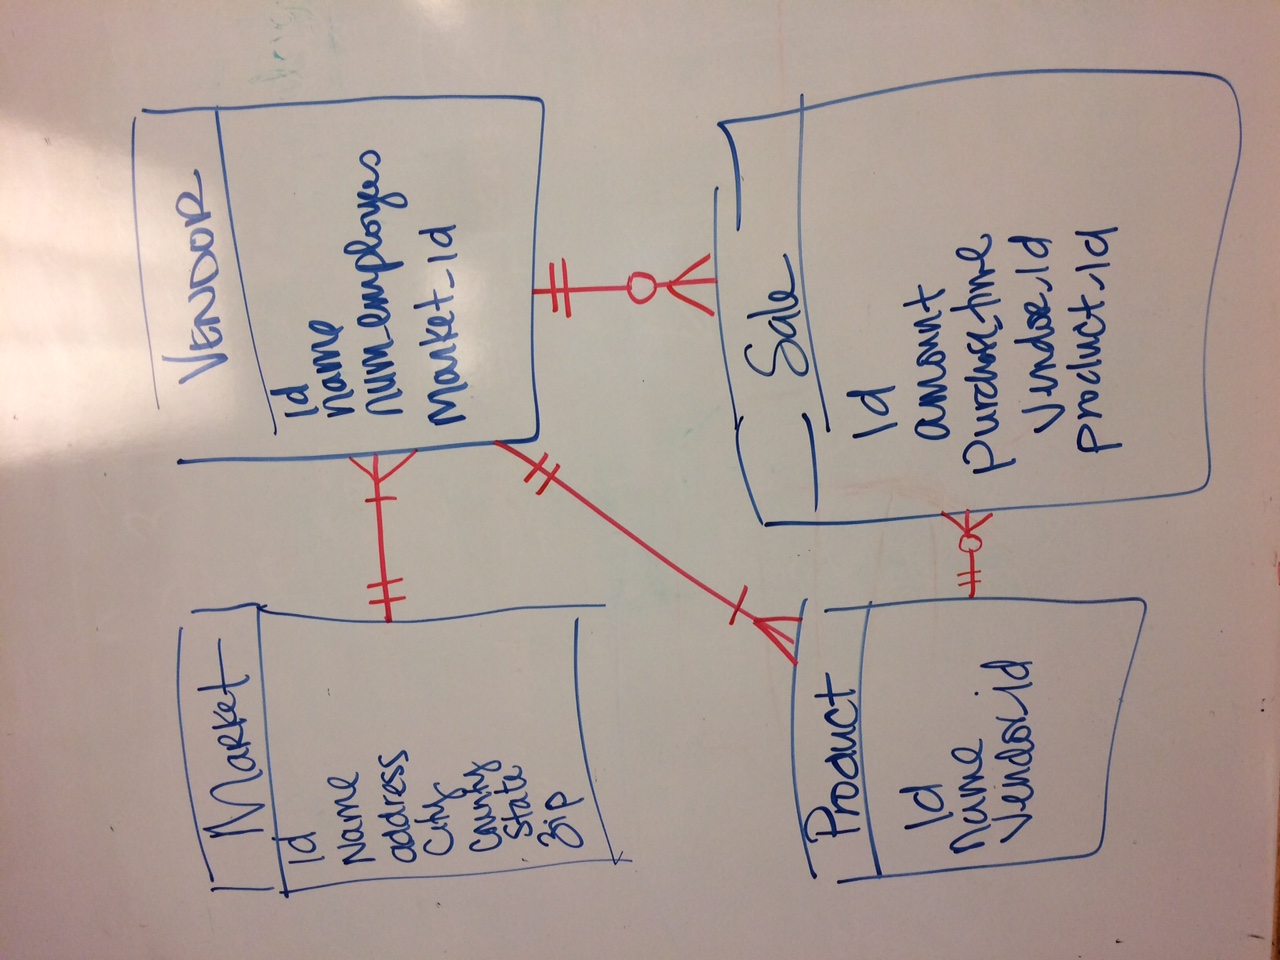 Market
Id
Name
address
City
County
State
Zip
VENDOR
Id
name
num_employees
Market_Id
Product
Id
name
Vendor_id
Sale
Id
amount
purchase_time
Vendor_Id
product_Id